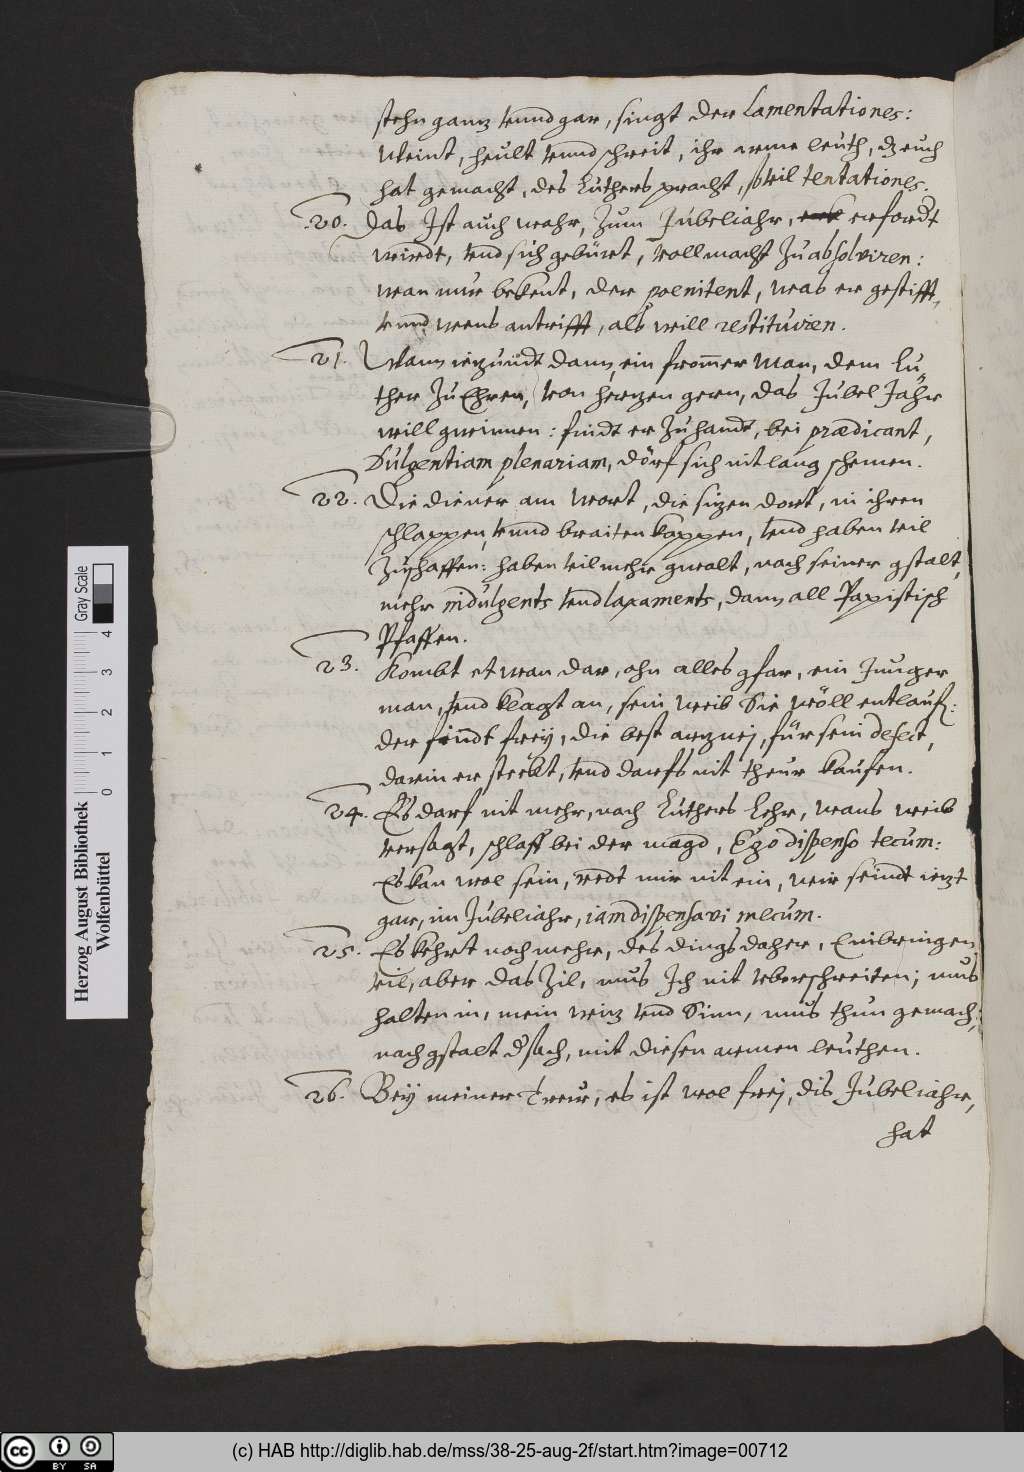 stehn ganz vnnd gar, singt der Lamentationes:
Weint, heult vnnd schreit, ihr arme leuth, dz euch
hat gemacht, des Luthers pracht, so vil tentationes.
20. Das Ist auch wahr, zum Jubeliahr, erfordt
wirdt, vnd sich gebürt, vollmacht zu absolviren:
wan nur bekent, der poenitent, was er gestifft,
vnnd wens antrifft, als will restituiren.
21. Wann iezundt dann, ein frommer Man, dem Lu„
ther zu Ehren, von herzen gern, das Jubel Jahr
will gwinnen: findt er zuhandt, bei prædicant,
Dulgentiam plenariam, dörf sich nit lang schemen.
22. Die diener am Wort, die sizen dort, in ihren
schlappen, vnnd braiten kappen, vnd haben vil
zuschaffen: haben vil mehr gwalt, nach seiner gstalt,
mehr indulgents vnd laxaments, dann all Papistisch
Pfaffen.
23. Kombt etwan dar, ohn alles gfar, ein Junger
man, vnd klagt an, sein weib Sie wöll entlauf:
der findt frey, die best arznej, für sein defect,
darin er steckt, vnd darfs nit theur kaufen.
24. Es darf nit mehr, nach Luthers Lehr, wans weib
versagt, schlaff bei der magd, Ego dispenso tecum:
Es kan wol sein, redt mir nit ein, wir seindt iezt
gar, im Jubeliahr, iam dispensavi mecum.
25. Es kehrt noch mehr, des dings daher, Einbringen
vil, aber das Zil, mus Ich nit vberschreiten; mus
halten in, mein wiz vnd Sinn, mus thun gemach,
nach gstalt der sach, mit diesen armen leuthen.
26. Bey meiner Treur, es ist wol frej, dis Jubeliahr,
hat
Herzog August Bibliothek
Wolfenbüttel
0 1 2 3 4
Gray Scale
cc BY SA
(c) HAB http://diglib.hab.de/mss/38-25-aug-2f/start.htm?image=00712